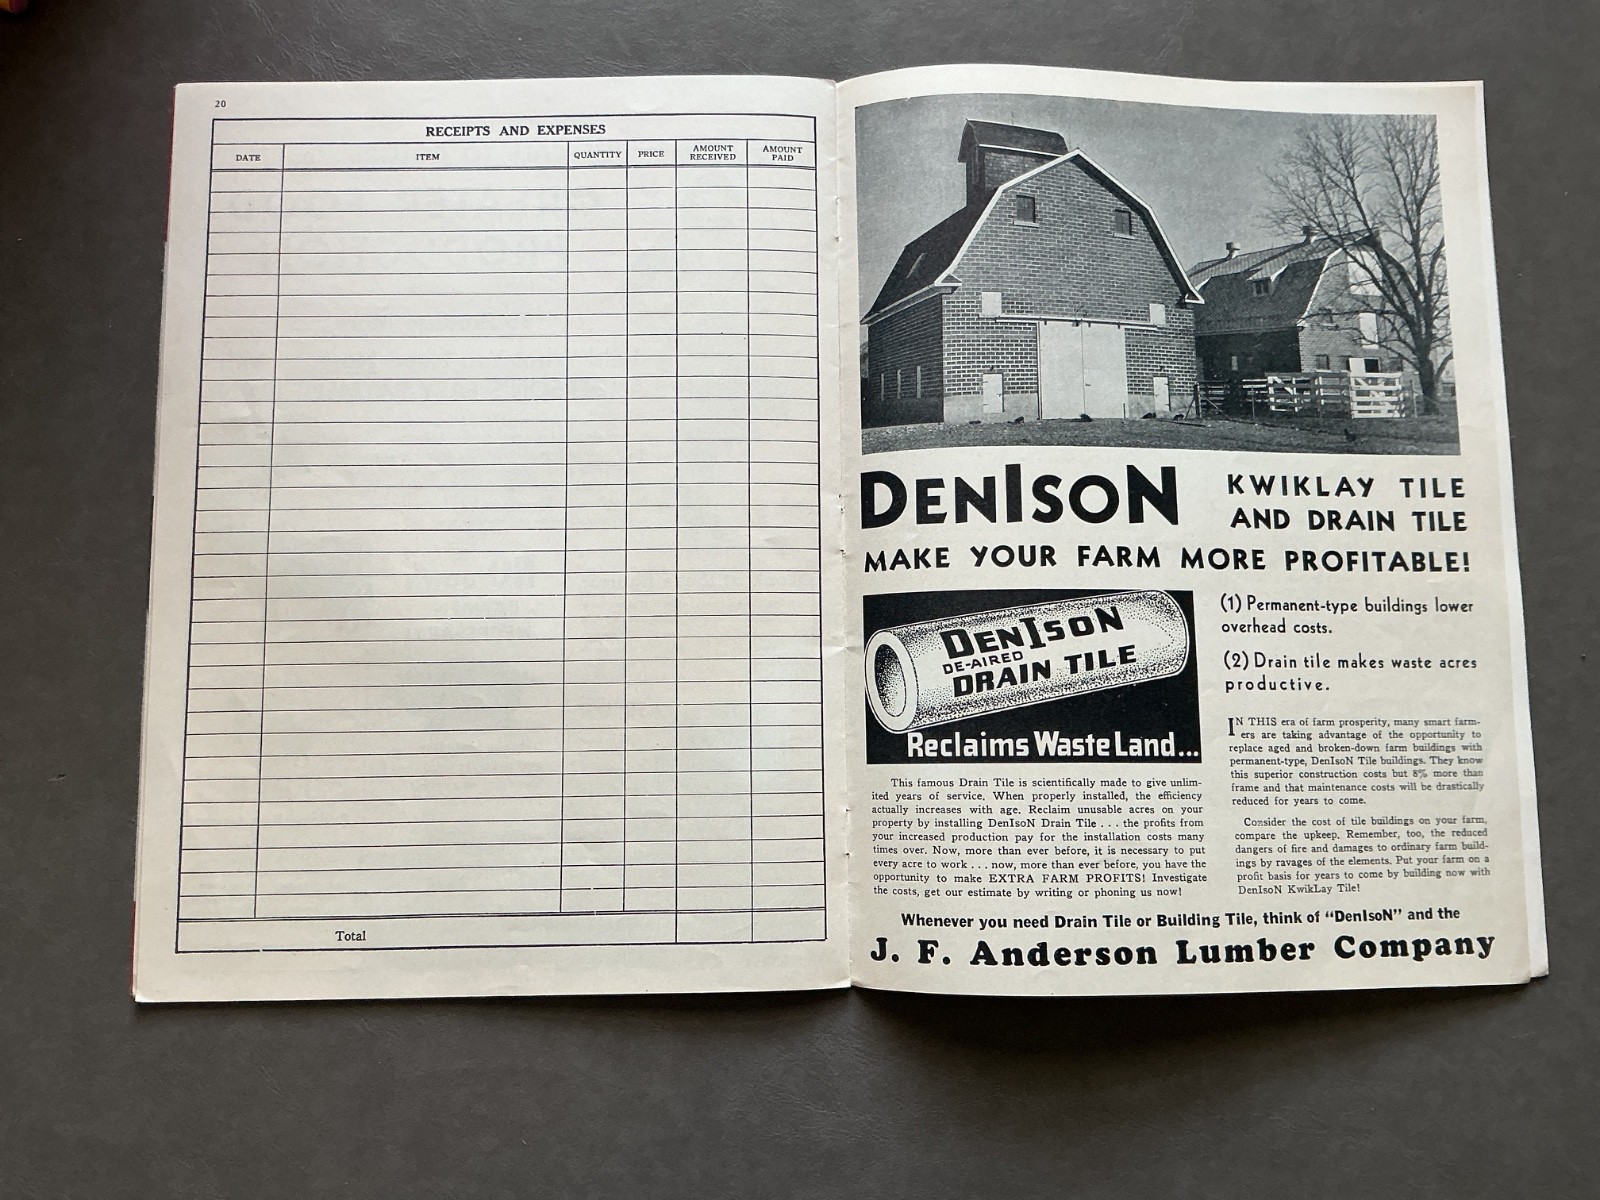 20
RECEIPTS AND EXPENSES
DATE ITEM QUANTITY PRICE AMOUNT RECEIVED AMOUNT PAID
Total
DENISON
KWIKLAY TILE
AND DRAIN TILE
MAKE YOUR FARM MORE PROFITABLE!
DENISON
DE-AIRED
DRAIN TILE
Reclaims Waste Land...
This famous Drain Tile is scientifically made to give unlim-
ited years of service. When properly installed, the efficiency
actually increases with age. Reclaim unusable acres on your
property by installing DenIsoN Drain Tile . . . the profits from
your increased production pay for the installation costs many
times over. Now, more than ever before, it is necessary to put
every acre to work . . . now, more than ever before, you have the
opportunity to make EXTRA FARM PROFITS! Investigate
the costs, get our estimate by writing or phoning us now!
(1) Permanent-type buildings lower
overhead costs.
(2) Drain tile makes waste acres
productive.
IN THIS era of farm prosperity, many smart farm-
ers are taking advantage of the opportunity to
replace aged and broken-down farm buildings with
permanent-type, DenIsoN Tile buildings. They know
this superior construction costs but 8% more than
frame and that maintenance costs will be drastically
reduced for years to come.
Consider the cost of tile buildings on your farm,
compare the upkeep. Remember, too, the reduced
dangers of fire and damages to ordinary farm build-
ings by ravages of the elements. Put your farm on a
profit basis for years to come by building now with
DenIsoN KwikLay Tile!
Whenever you need Drain Tile or Building Tile, think of "DenIsoN" and the
J. F. Anderson Lumber Company